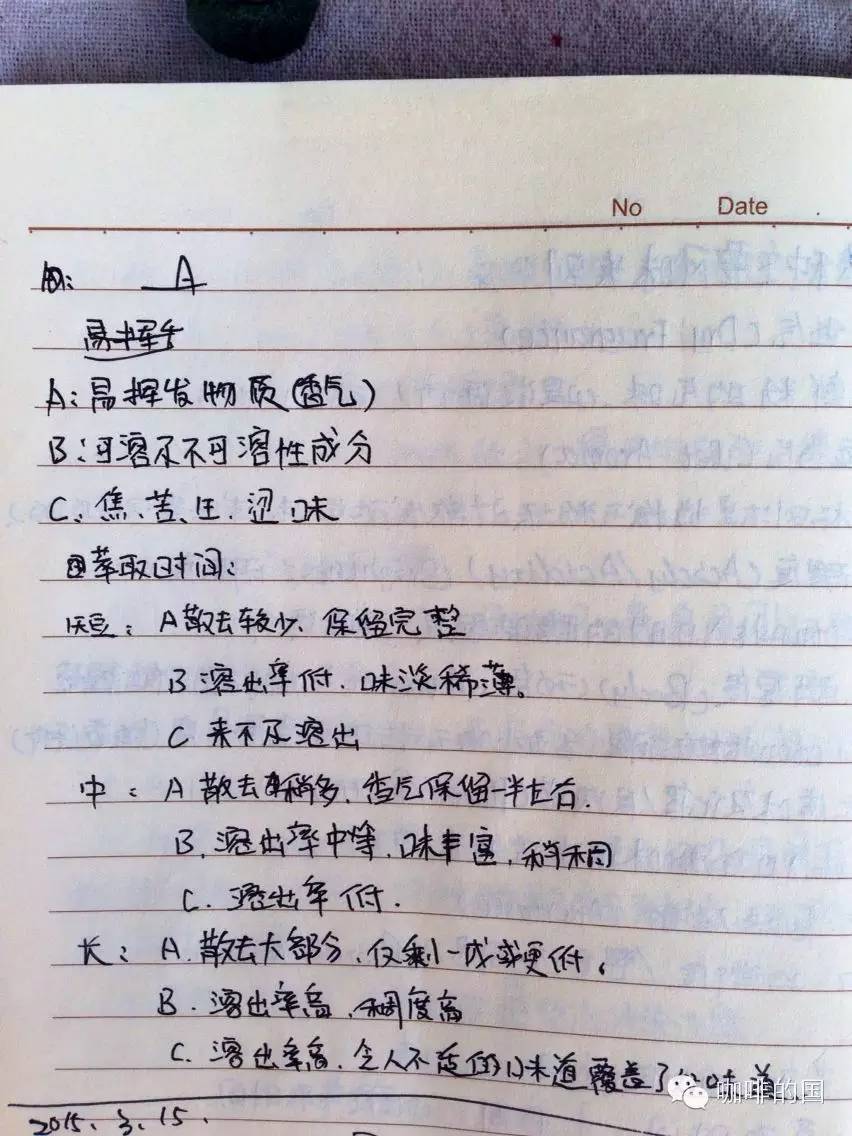 No Date
例: A
A: 易挥发物质(香气)
B: 可溶不可溶性成分
C. 焦、苦、涩味
萃取时间:
短: A 散去较少、保留完整
B 溶出率低、味淡稀薄。
C 来不及溶出
中: A 散去稍多、香气保留一半左右.
B. 溶出率中等、味丰富、稍稠
C. 溶出率低.
长: A. 散去大部分、仅剩一成或更低.
B. 溶出率高、稠度高
C. 溶出率高、令人不适的味道覆盖了
咖啡的国
2015. 3. 15.